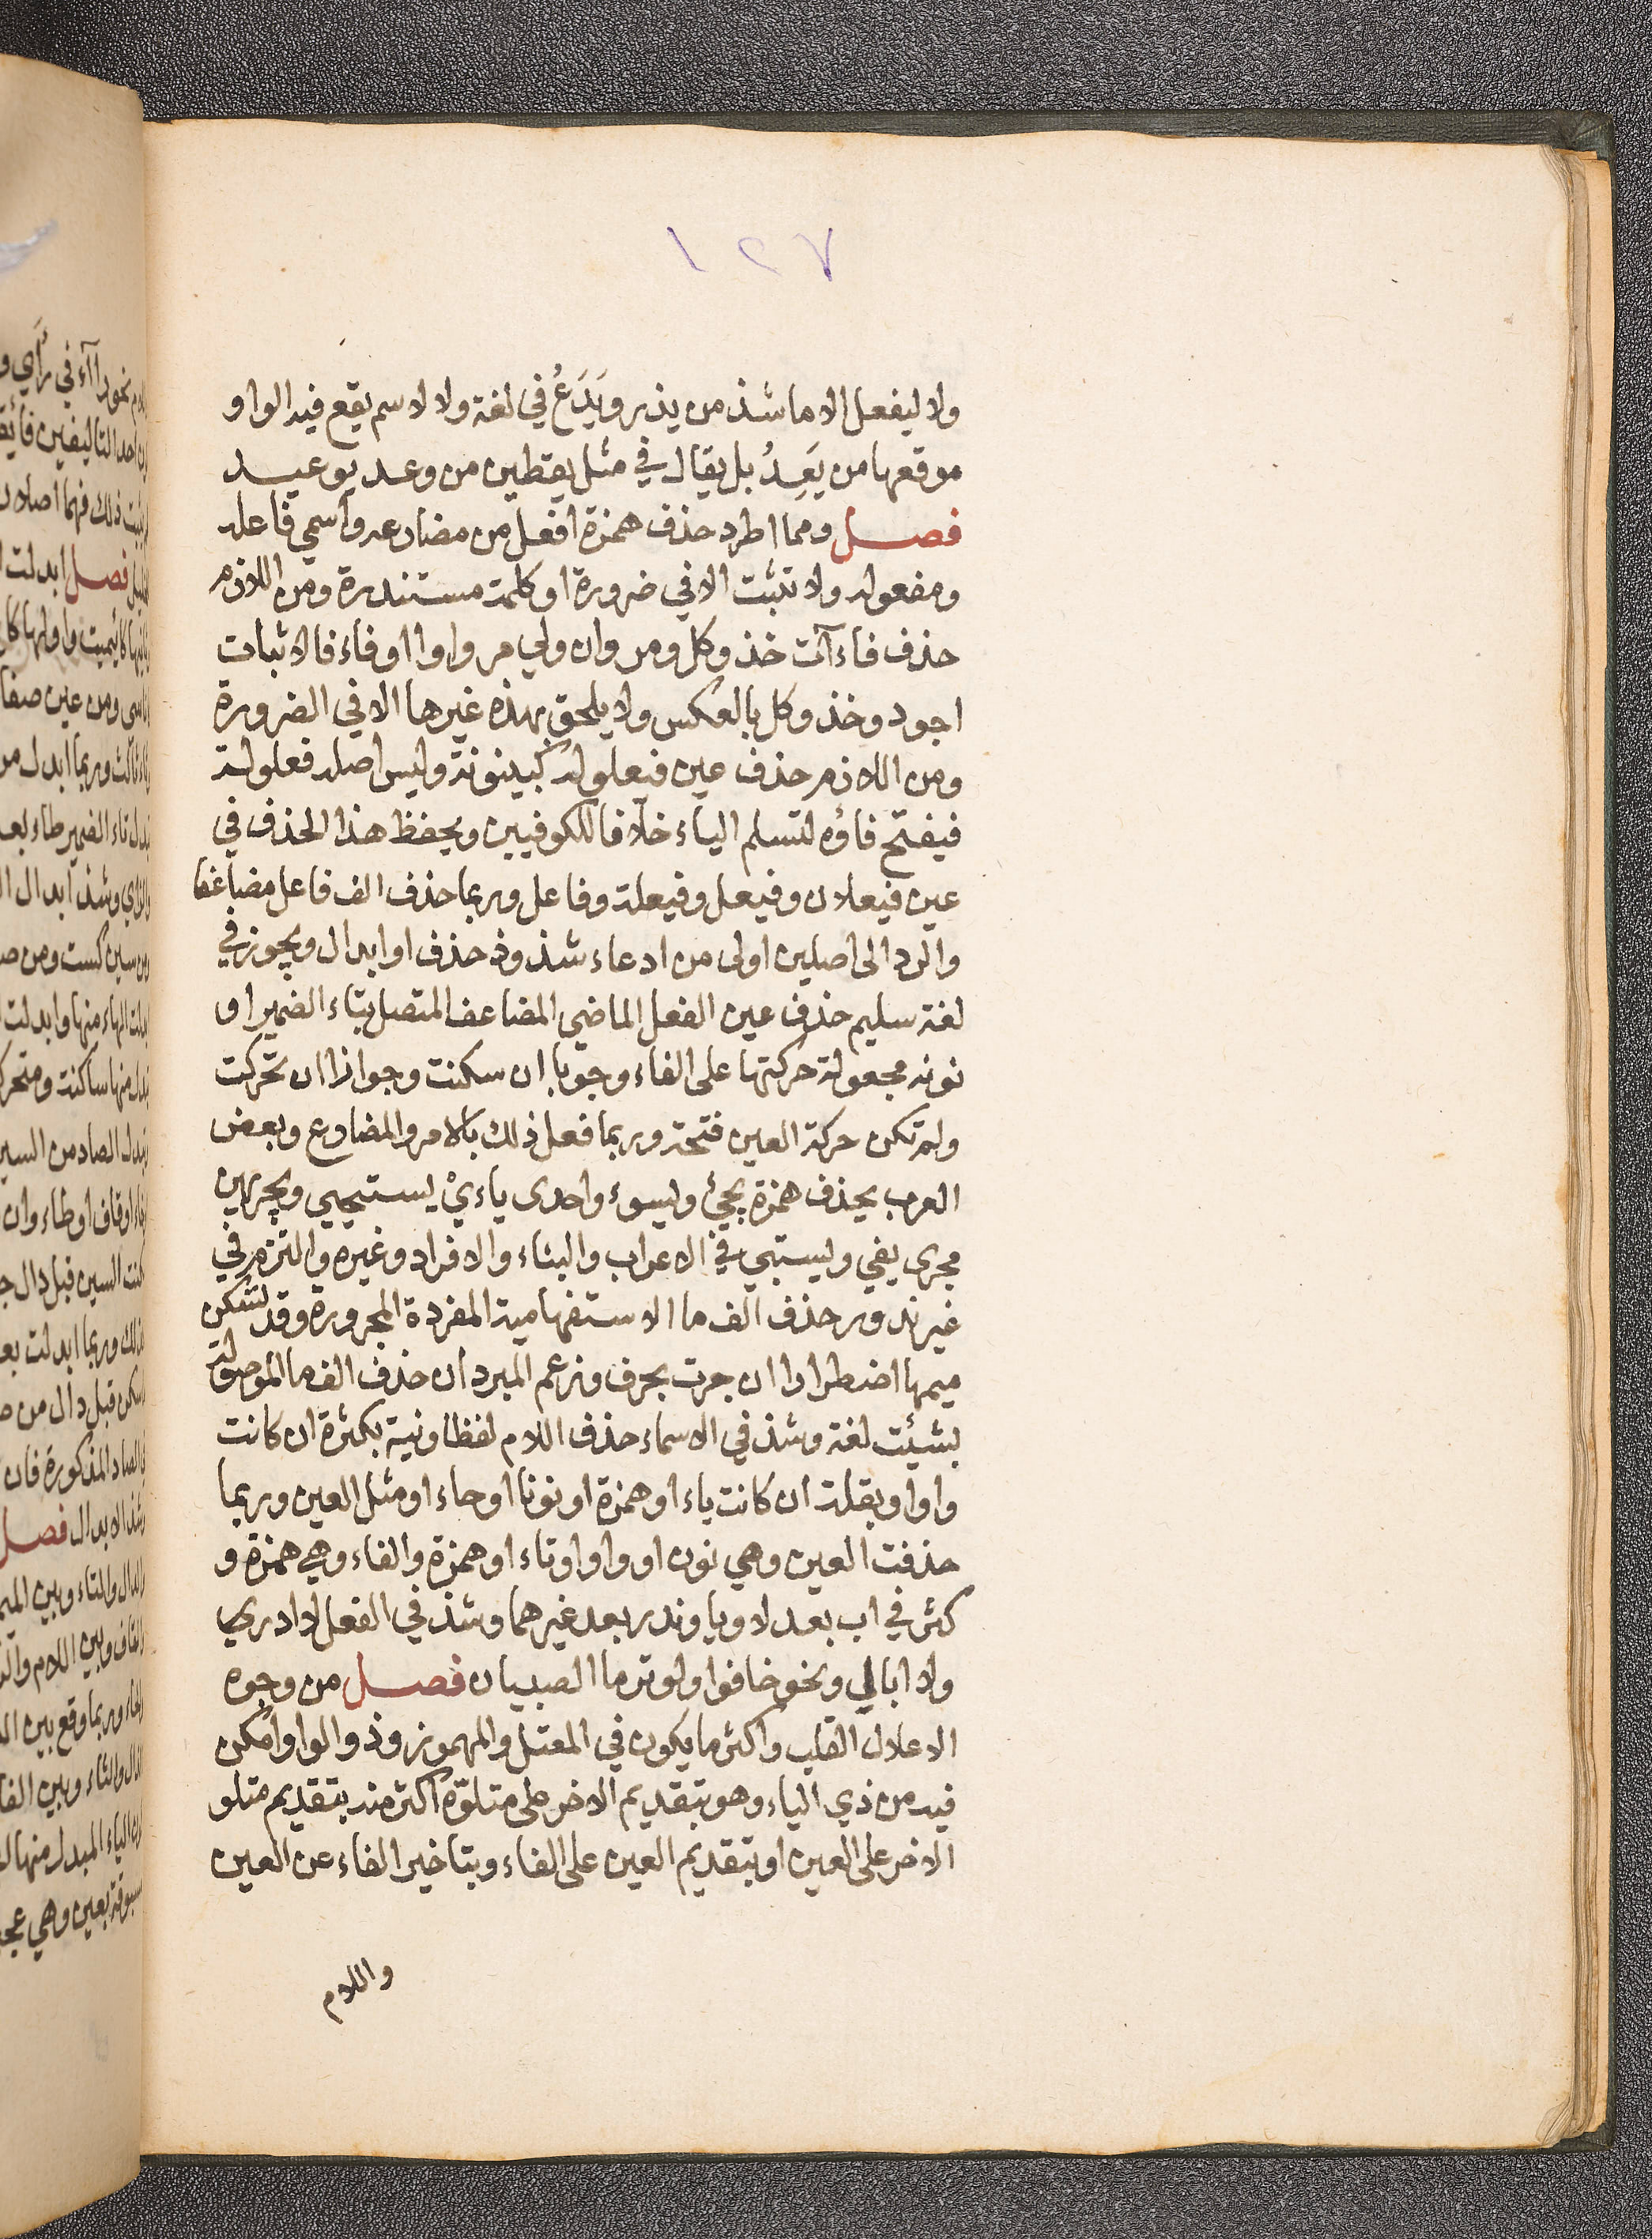 ١٢٧
ولا ليفعل الا ما شذ من يذر ويَدَعُ في لغة ولا لاسم يقع فيه الواو
موقعها من يَعِدُ بل يقال في مثل يقطين من وعد يوعيد
فصل ومما اطرد حذف همزة افعل من مضارعه وآسمي فاعله
ومفعوله ولا تثبت الا في ضرورة او كلمة مستندرة ومن اللازم
حذف فاءآت خذ وكل ومر وان ولي مر واوا او فاء فالاثبات
اجود وخذ وكل بالعكس ولا يلحق بهذه غيرها الا في الضرورة
ومن اللازم حذف عين فيعلوله كبينونة وليس اصله فعلولة
فيفتح فاؤه لتسلم الياء خلافا للكوفيين ويحفظ هذا الحذف في
عين فيعلان وفيعل وفيعلة وفاعل وربما حذف الف فاعل مضاعفا
والرد الى اصلين اولى من ادعاء شذوذ حذف او ابدال ويجوز في
لغة سليم حذف عين الفعل الماضي المضاعف المتصل بتاء الضمير او
نونه مجعولة حركتها على الفاء وجوبا ان سكنت وجوازا ان تحركت
ولم تكن حركة العين فتحة وربما فعل ذلك بالامر والمضارع وبعض
العرب يحذف همزة يجئ ويسوء واحدى ياءيْ يستحيي ويجريهن
مجرى يفي ويستبي في الاعراب والبناء والافراد وغيره والتزم في
غير ندور حذف الف ما الاستفهامية المفردة المجرورة وقد تسكن
ميمها اضطرارا ان جرت بحرف وزعم المبرد ان حذف الف ما الموصولة
بشيئت لغة وشذ في الاسماء حذف اللام لفظا ونية بكثرة ان كانت
واوا وبقلة ان كانت ياء او همزة او نونا او حاء او مثل العين وربما
حذفت العين وهي نون او واو او تاء او همزة والفاء وهي همزة و
كثر في اب بعد لا ويا وندر بعد غيرهما وشذ في الفعل لا ادري
ولا ابالي ونحو خافوا ولو ترما الصبيان فصل من وجوه
الاعلال القلب واكثر ما يكون في المعتل والمهموز وذو الواو امكن
فيه من ذي الياء وهو بتقديم الاخر على متلوّه اكثر منه بتقديم متلو
الاخر على العين او بتقديم العين على الفاء وبتاخير الفاء عن العين
واللام